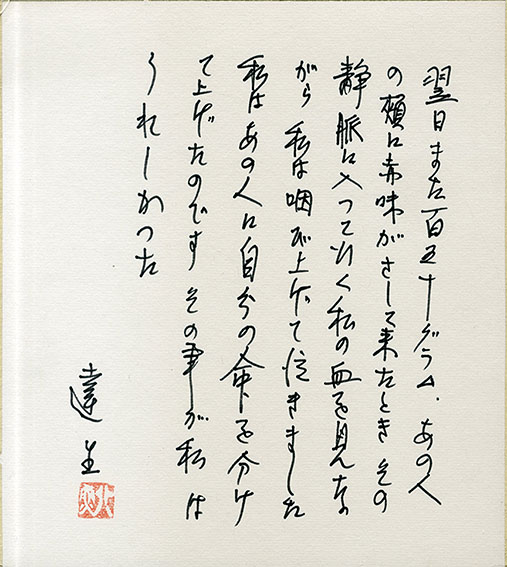 翌日また百五十グラム．あの人
の頬に赤味がさして来たとき その
静脈に入って行く私の血を見なな
がら 私は咽び上げて泣きました
私はあの人に自分の命を分け
て上げたのです その事が私は
うれしかった
達三